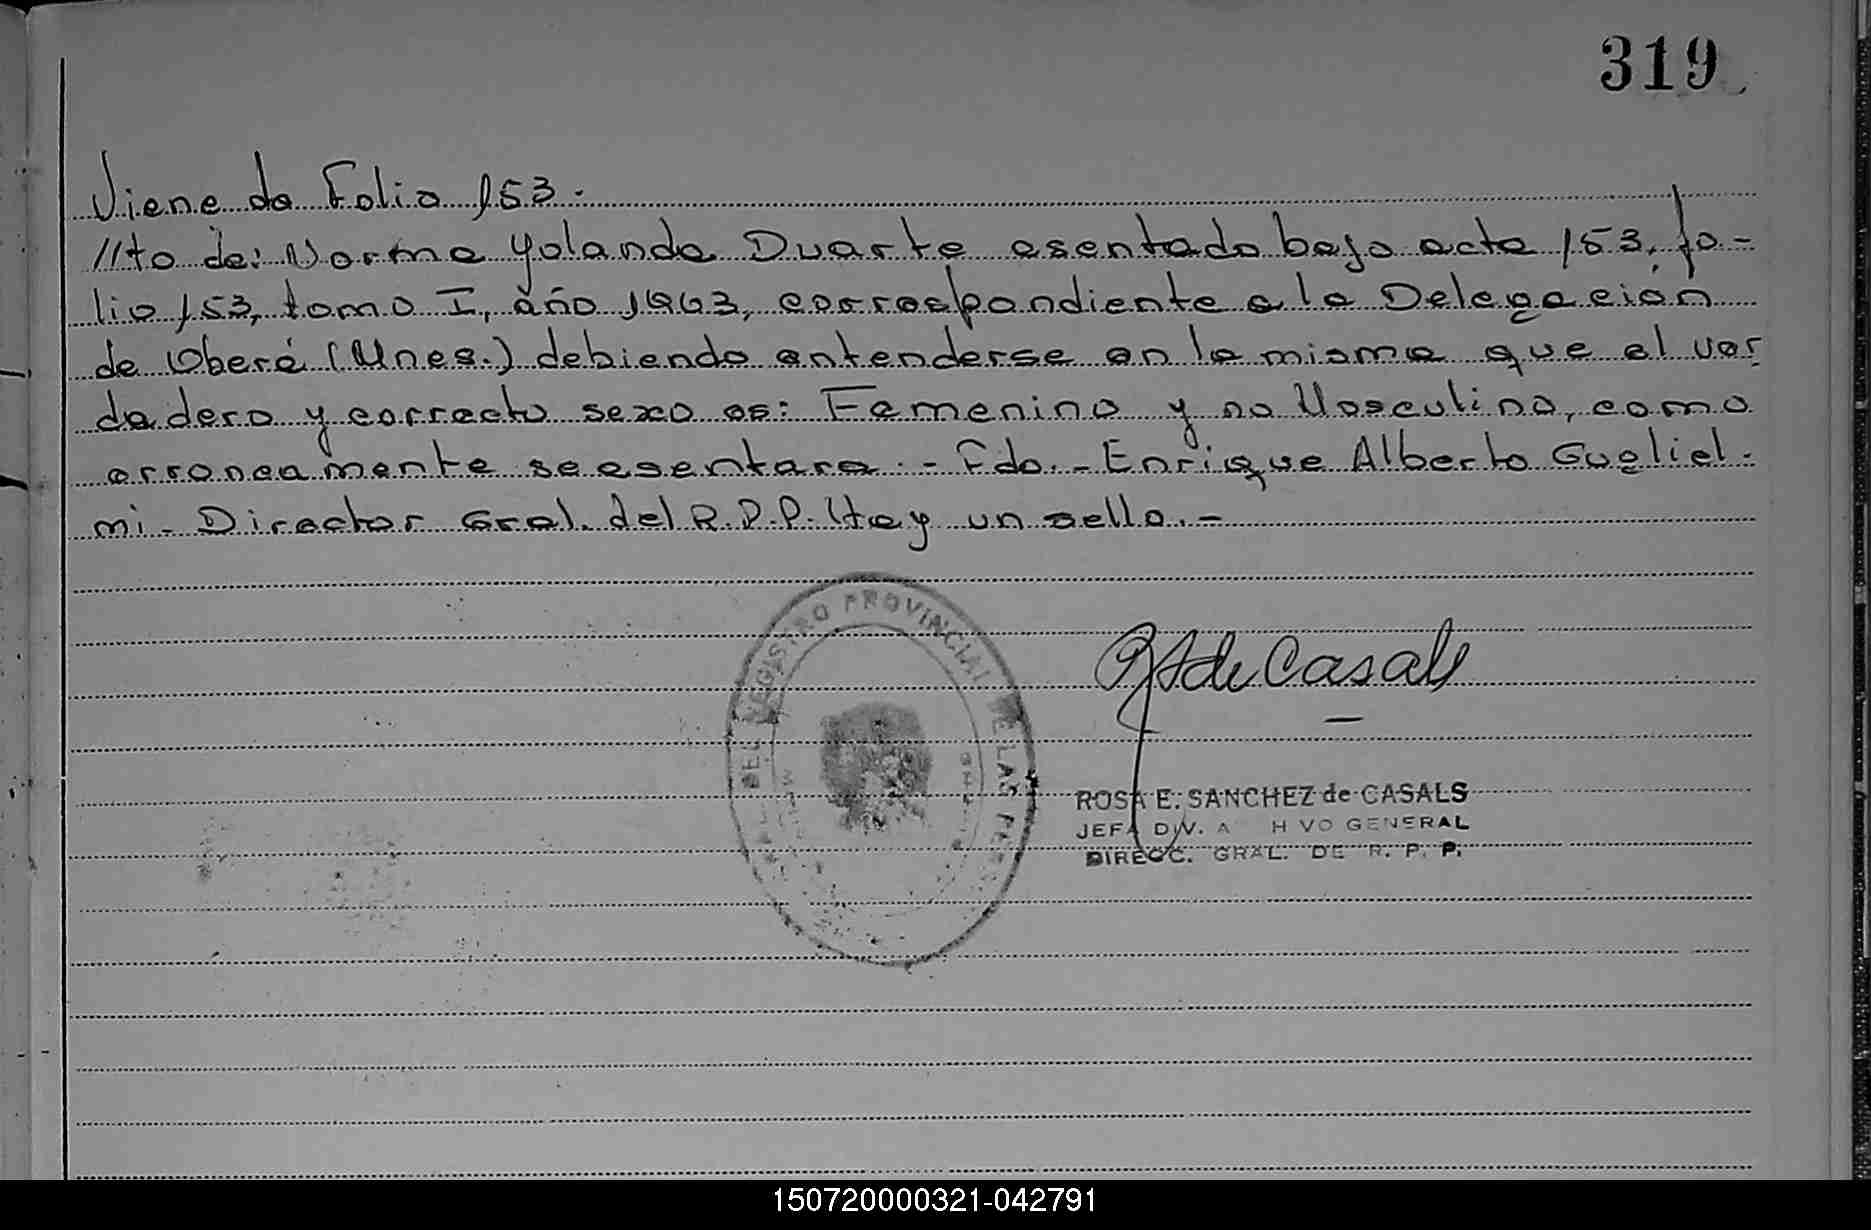 319
Viene de Folio 153.
//to de: Norma Yolanda Duarte asentado bajo acta 153, fo-
lio 153, tomo I, año 1963, correspondiente a la Delegación
de Oberá (Mnes.) debiendo entenderse en la misma que el ver
dadero y correcto sexo es: Femenino y no Masculino, como
erroneamente se asentara.- Fdo.- Enrique Alberto Gugliel-
mi- Director Gral. del R.P.P. Hay un sello.-
DEL REGISTRO PROVINCIAL DE LAS
de Casals
ROSA E. SANCHEZ de CASALS
JEFA DIV. A HVO GENERAL
DIRECC. GRAL. DE R. P. P.
150720000321-042791